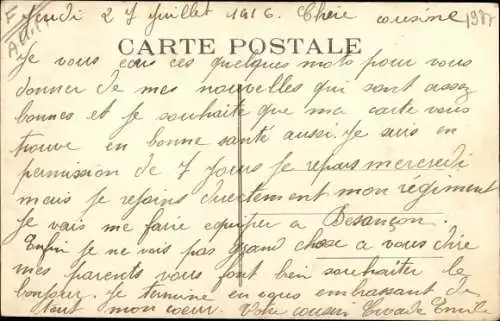 Jeudi 27 Juillet 1916. Chère cousine
CARTE POSTALE
Je vous écris ces quelques mots pour vous
donner de mes nouvelles qui sont assez
bonnes et je souhaite que ma carte vous
trouve en bonne santé aussi. Je suis en
permission de 7 jours je repars mercredi
mais je rejoins directement mon régiment
Je vais me faire équiper a Besançon.
Enfin je ne vois pas grand chose a vous dire
mes parents vous font bien souhaiter le
bonjour. Je termine en vous embrassant de
tout mon coeur. Votre cousin Emile